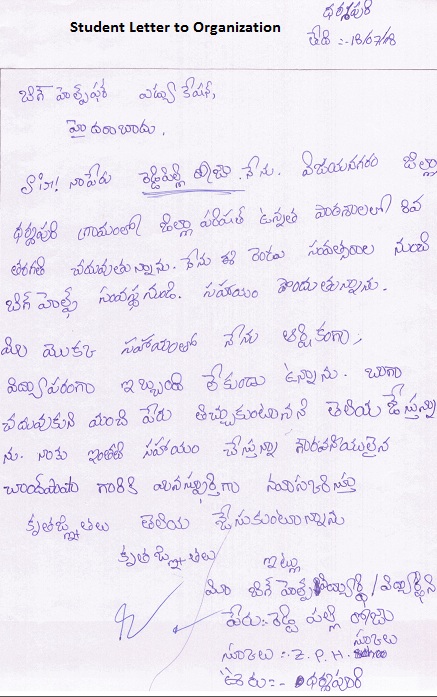 Student Letter to Organization
ధర్మపురి
తేది :- 18/07/18
బిగ్ హెల్ప్‌ఫర్ ఎడ్యుకేషన్,
హైదరాబాదు.
నా పేరు రెడ్డిపల్లి రోజా. నేను. విజయనగరం జిల్లా
ధర్మపురి గ్రామంలో జిల్లా పరిషత్ ఉన్నత పాఠశాలలో
తరగతి చదువుతున్నాను. నేను ఈ రెండు సంవత్సరాల నుంచి
బిగ్ హెల్ప్ సంస్థ నుండి. సహాయం పొందుతున్నాను.
మీ యొక్క సహాయంతో నేను ఆర్థికంగా,
విద్యాపరంగా ఇబ్బంది లేకుండా ఉన్నాను. బాగా
చదువుకుని మంచి పేరు తెచ్చుకుంటానని తెలియ జేస్తున్నా
ను. నాకు ఇంతటి సహాయం చేస్తున్న గౌరవనీయులైన
చాంద్‌పాషా గారికి మనస్ఫూర్తిగా నమస్కరిస్తూ
కృతజ్ఞతలు తెలియ జేసుకుంటున్నాను
కృతజ్ఞతలు
ఇట్లు
మీ బిగ్ హెల్ప్ విద్యార్థి / విద్యార్థిని
పేరు:- రెడ్డి పల్లి రోజా
స్కూలు :- Z.P.H. స్కూలు
ఊరు :- ధర్మపురి